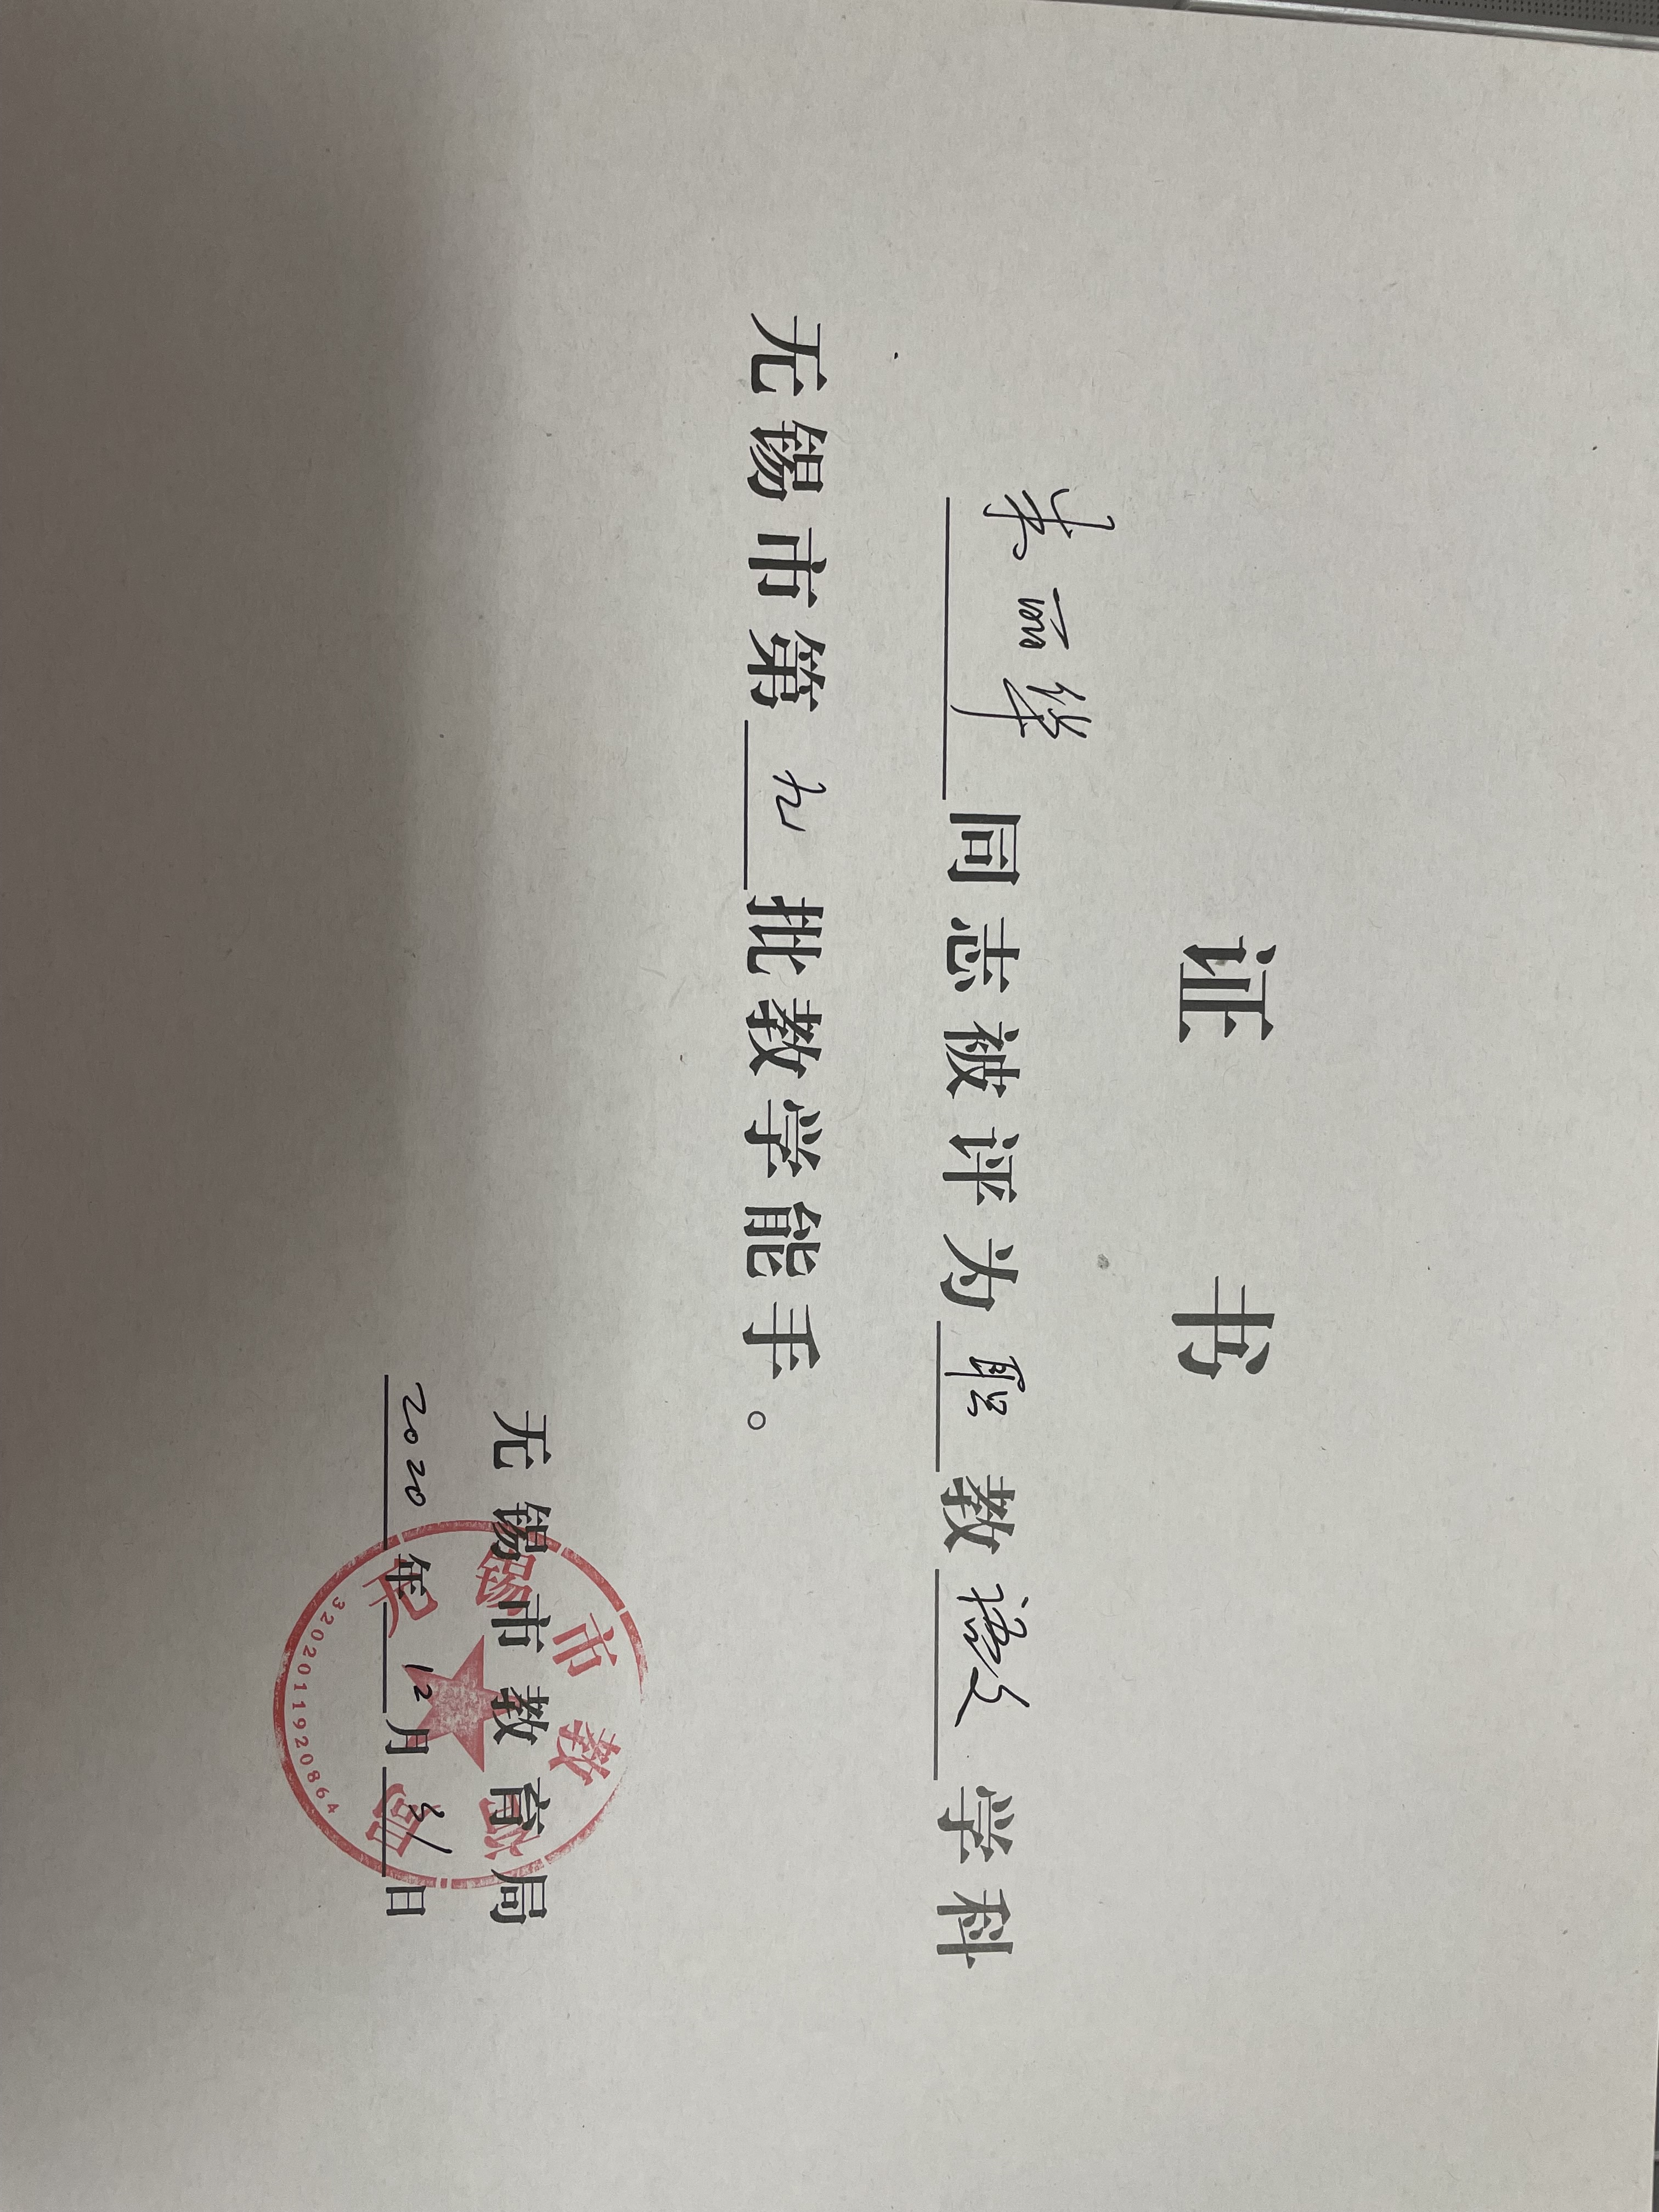 证 书
朱丽华同志被评为职教语文学科
无锡市第九批教学能手。
无锡市教育局
2020年12月31日
锡市教育局
3202011920864